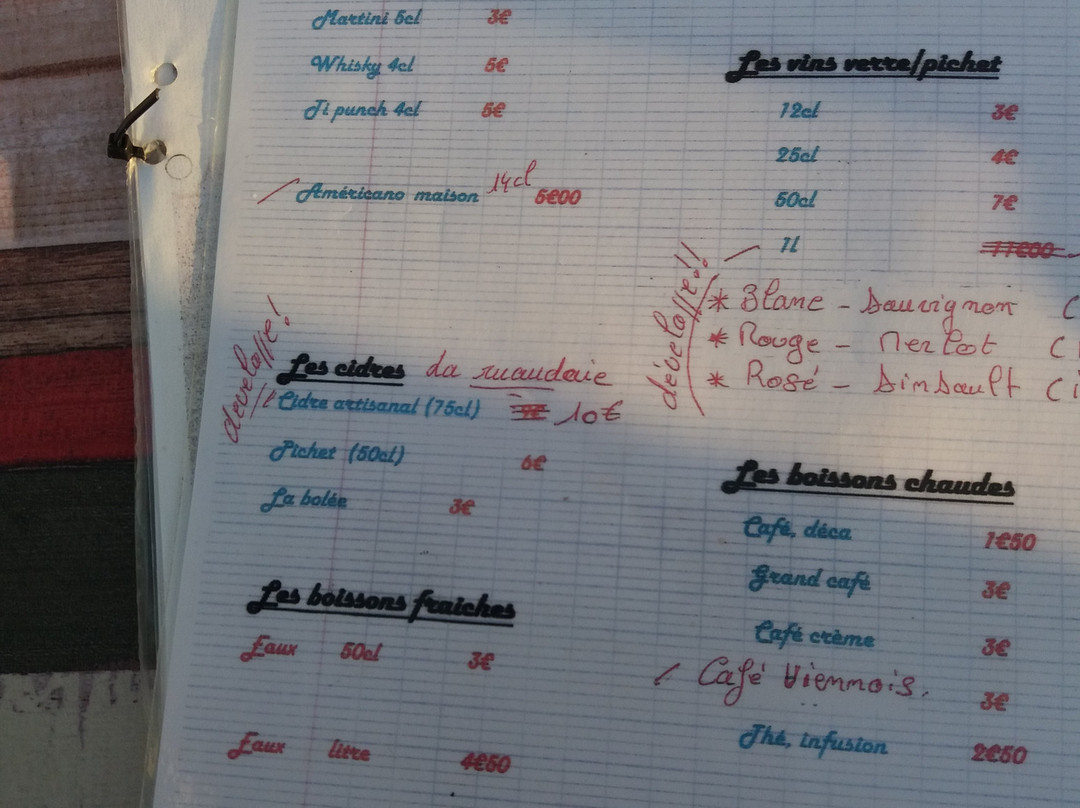 Martini 5cl 3€
Whisky 4cl 5€
Ti punch 4cl 5€
Américano maison 14cl 5€00
developpe!
Les cidres La
Cidre artisanal (75cl) 10€
Pichet (50cl) 6€
La bolée 3€
Les boissons fraiches
Eaux 50cl 3€
Eaux litre 4€50
Les vins verre/pichet
12cl 3€
25cl 4€
50cl 7€
1L 11€00
* Blanc - Sauvignon (
* Rouge - Merlot (
* Rosé - Sinsault (
Les boissons chaudes
Café, déca 1€50
Grand café 3€
Café crème 3€
Café Viennois. 3€
Thé, infusion 2€50